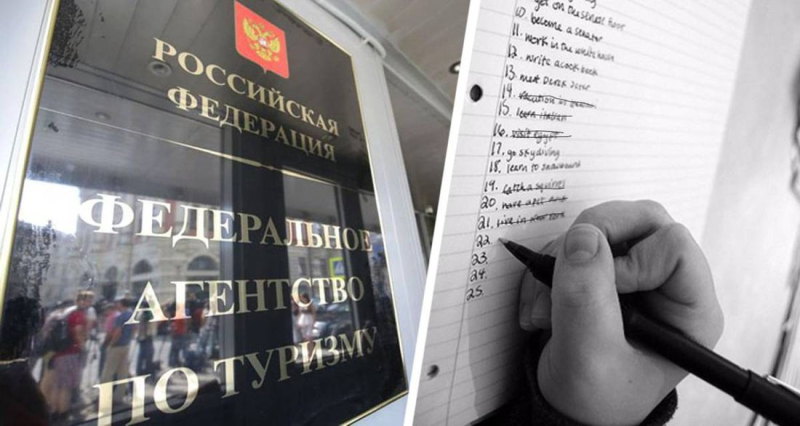 РОССИЙСКАЯ
ФЕДЕРАЦИЯ
ФЕДЕРАЛЬНОЕ
АГЕНТСТВО
ПО ТУРИЗМУ
get on
10. become a senator
11. work in the white house
12. write a cook book
13. meet Derek Jeter
14. vacation in
15. learn italian
16. visit egypt
17. go skydiving
18. learn to snowboard
19. catch a squirrel
20. have a pet
21. live in new york
22.
23.
24.
25.